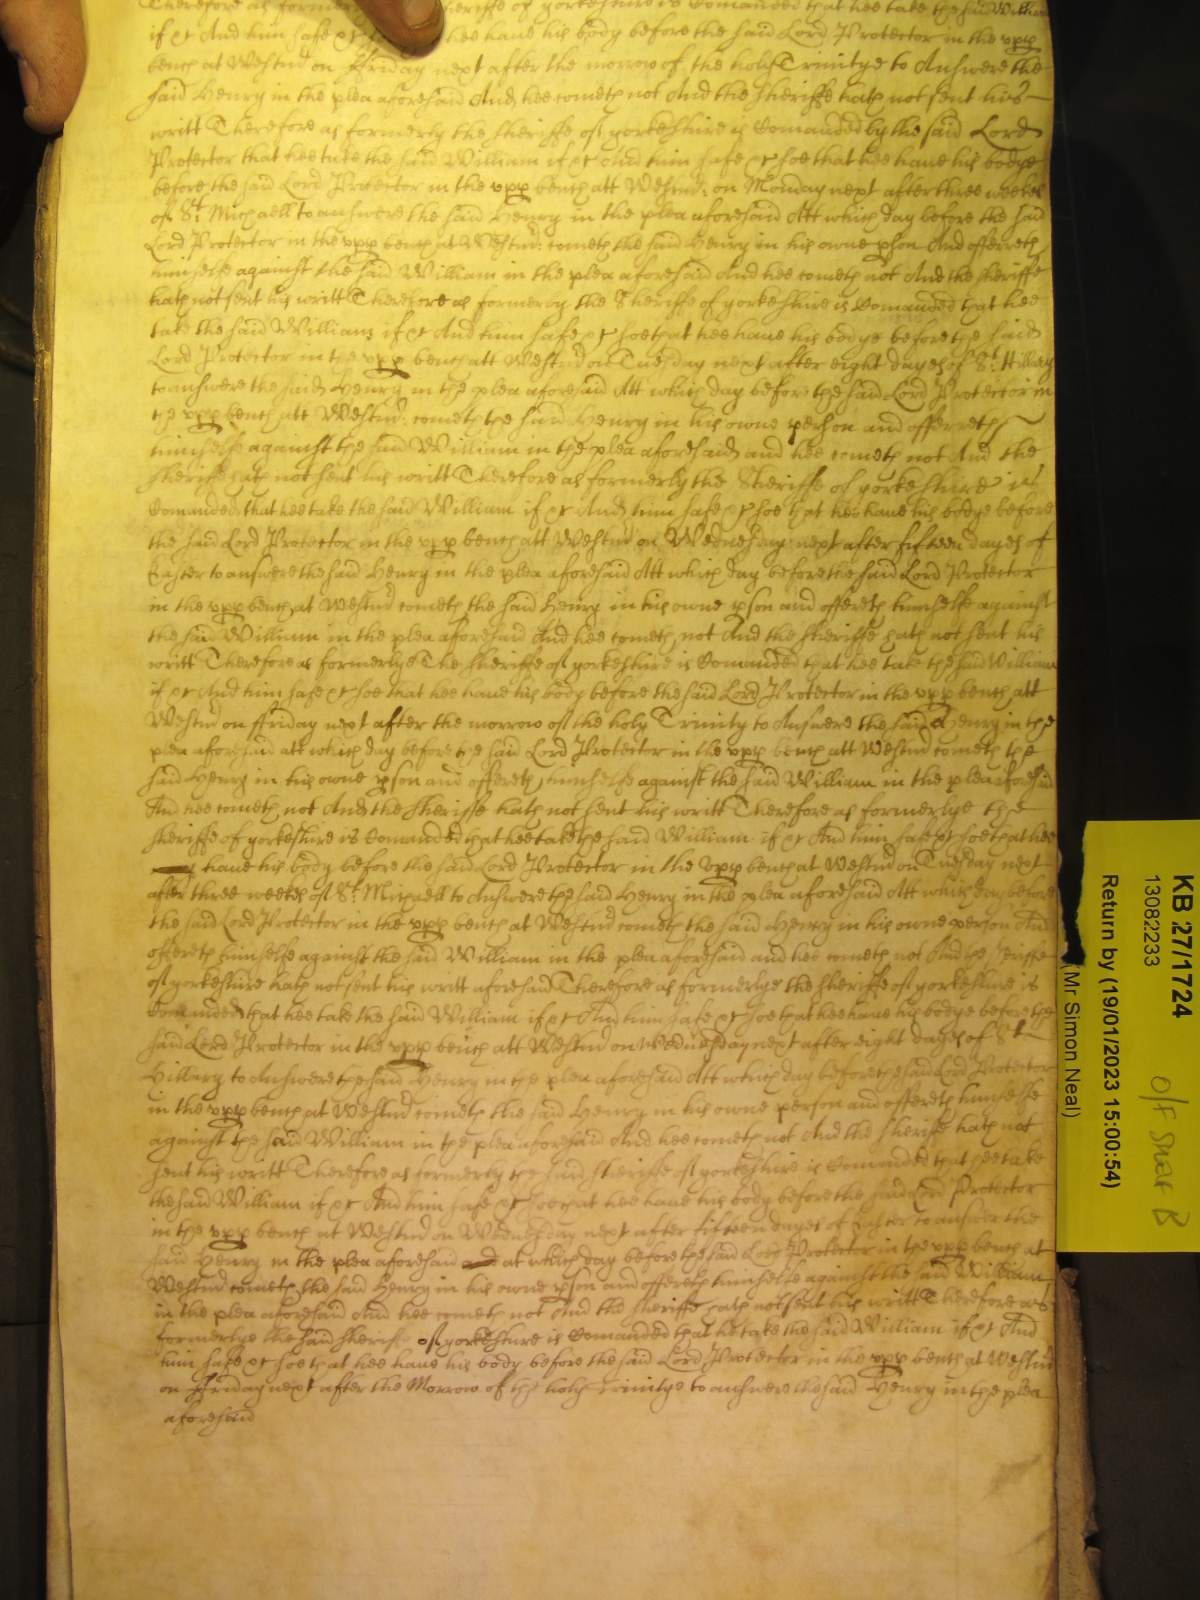 Therefore as formerly Sheriffe of yorkeshire is Comanded that hee take the said William
if &c And him safe &c hee have his body before the said Lord Protector in the upp
bench at Westmr on ffriday next after the morrow of the holy Trinitye to Answere the
said Henry in the plea aforesaid And hee cometh not And the sheriffe hath not sent his
writt Therefore as formerly the sheriffe of yorkeshire is Comanded by the said Lord
Protector that hee take the said William if &c And him safe &c soe that hee have his bodye
before the said Lord Protector in the upp bench att Westmr: on Monday next after three weekes
of St Michaell to answere the said Henry in the plea aforesaid Att which day before the said
Lord Protector in the upp bench at Westmr: cometh the said Henry in his owne pson And offereth
himselfe against the said William in the plea aforesaid And hee cometh not And the sheriffe
hath not sent his writt Therefore as formerly the Sheriffe of yorkeshire is Comanded that hee
take the said William if &c And him safe &c soe that hee have his bodye before the said
Lord Protector in the upp bench att Westmr on Tuesday next after eight dayes of St Hillary
to answere the said Henry in the plea aforesaid Att which day before the said Lord Protector in
the upp bench att Westmr: cometh the said Henry in his owne person and offereth
himselfe against the said William in the plea aforesaid and hee cometh not And the
sheriffe hath not sent his writt Therefore as formerly the Sheriffe of yorkeshire is
Comanded that hee take the said William if &c And him safe &c soe that hee have his bodye before
the said Lord Protector in the upp bench att Westmr on Wednesday next after fifteen dayes of
Easter to answere the said Henry in the plea aforesaid Att which day before the said Lord Protector
in the upp bench at Westmr cometh the said Henry in his owne pson and offereth himselfe against
the said William in the plea aforesaid And hee cometh not And the sheriffe hath not sent his
writt Therefore as formerlye The sheriffe of yorkeshire is Comanded that hee take the said William
if &c And him safe &c soe that hee have his body before the said Lord Protector in the upp bench att
Westmr on ffriday next after the morrow of the holy Trinity to Answere the said Henry in the
plea aforesaid att which day before the said Lord Protector in the upp bench att Westmr cometh the
said Henry in his owne pson and offereth himselfe against the said William in the plea aforesaid
And hee cometh not And the sheriffe hath not sent his writt Therefore as formerlye the
sheriffe of yorkeshire is Comanded that hee take the said William if &c And him safe &c soe that hee
have his body before the said Lord Protector in the upp bench at Westmr on Tuesday next
after three weekes of St Michaell to Answere the said Henry in the plea aforesaid Att which day before
the said Lord Protector in the upp bench at Westmr cometh the said Henry in his owne person And
offereth himselfe against the said William in the plea aforesaid and hee cometh not And the sheriffe
of yorkeshire hath not sent his writt aforesaid Therefore as formerlye the sheriffe of yorkeshire is
Comanded that hee take the said William if &c And him safe &c soe that hee have his bodye before the
said Lord Protector in the upp bench att Westmr on Wednesday next after eight dayes of St
Hillary to Answere the said Henry in the plea aforesaid Att which day before the said Lord Protector
in the upp bench at Westmr cometh the said Henry in his owne person and offereth himselfe
against the said William in the plea aforesaid And hee cometh not And the sheriffe hath not
sent his writt Therefore as formerly the said sheriffe of yorkeshire is Comanded that hee take
the said William if &c And him safe &c soe that hee have his body before the said Lord Protector
in the upp bench at Westmr on Wednesday next after fifteen dayes of Easter to answer the
said Henry in the plea aforesaid at which day before the said Lord Protector in the upp bench at
Westmr cometh the said Henry in his owne pson and offereth himselfe against the said William
in the plea aforesaid And hee cometh not And the sheriffe hath not sent his writt Therefore as
formerlye the said sheriffe of yorkeshire is Comanded that he take the said William if &c And
him safe &c soe that hee have his body before the said Lord Protector in the upp bench at Westmr
on ffriday next after the Morrow of the holy Trinitye to answere the said Henry in the plea
aforesaid
KB 27/1724
13082233
Return by (19/01/2023 15:00:54)
(Mr Simon Neal)